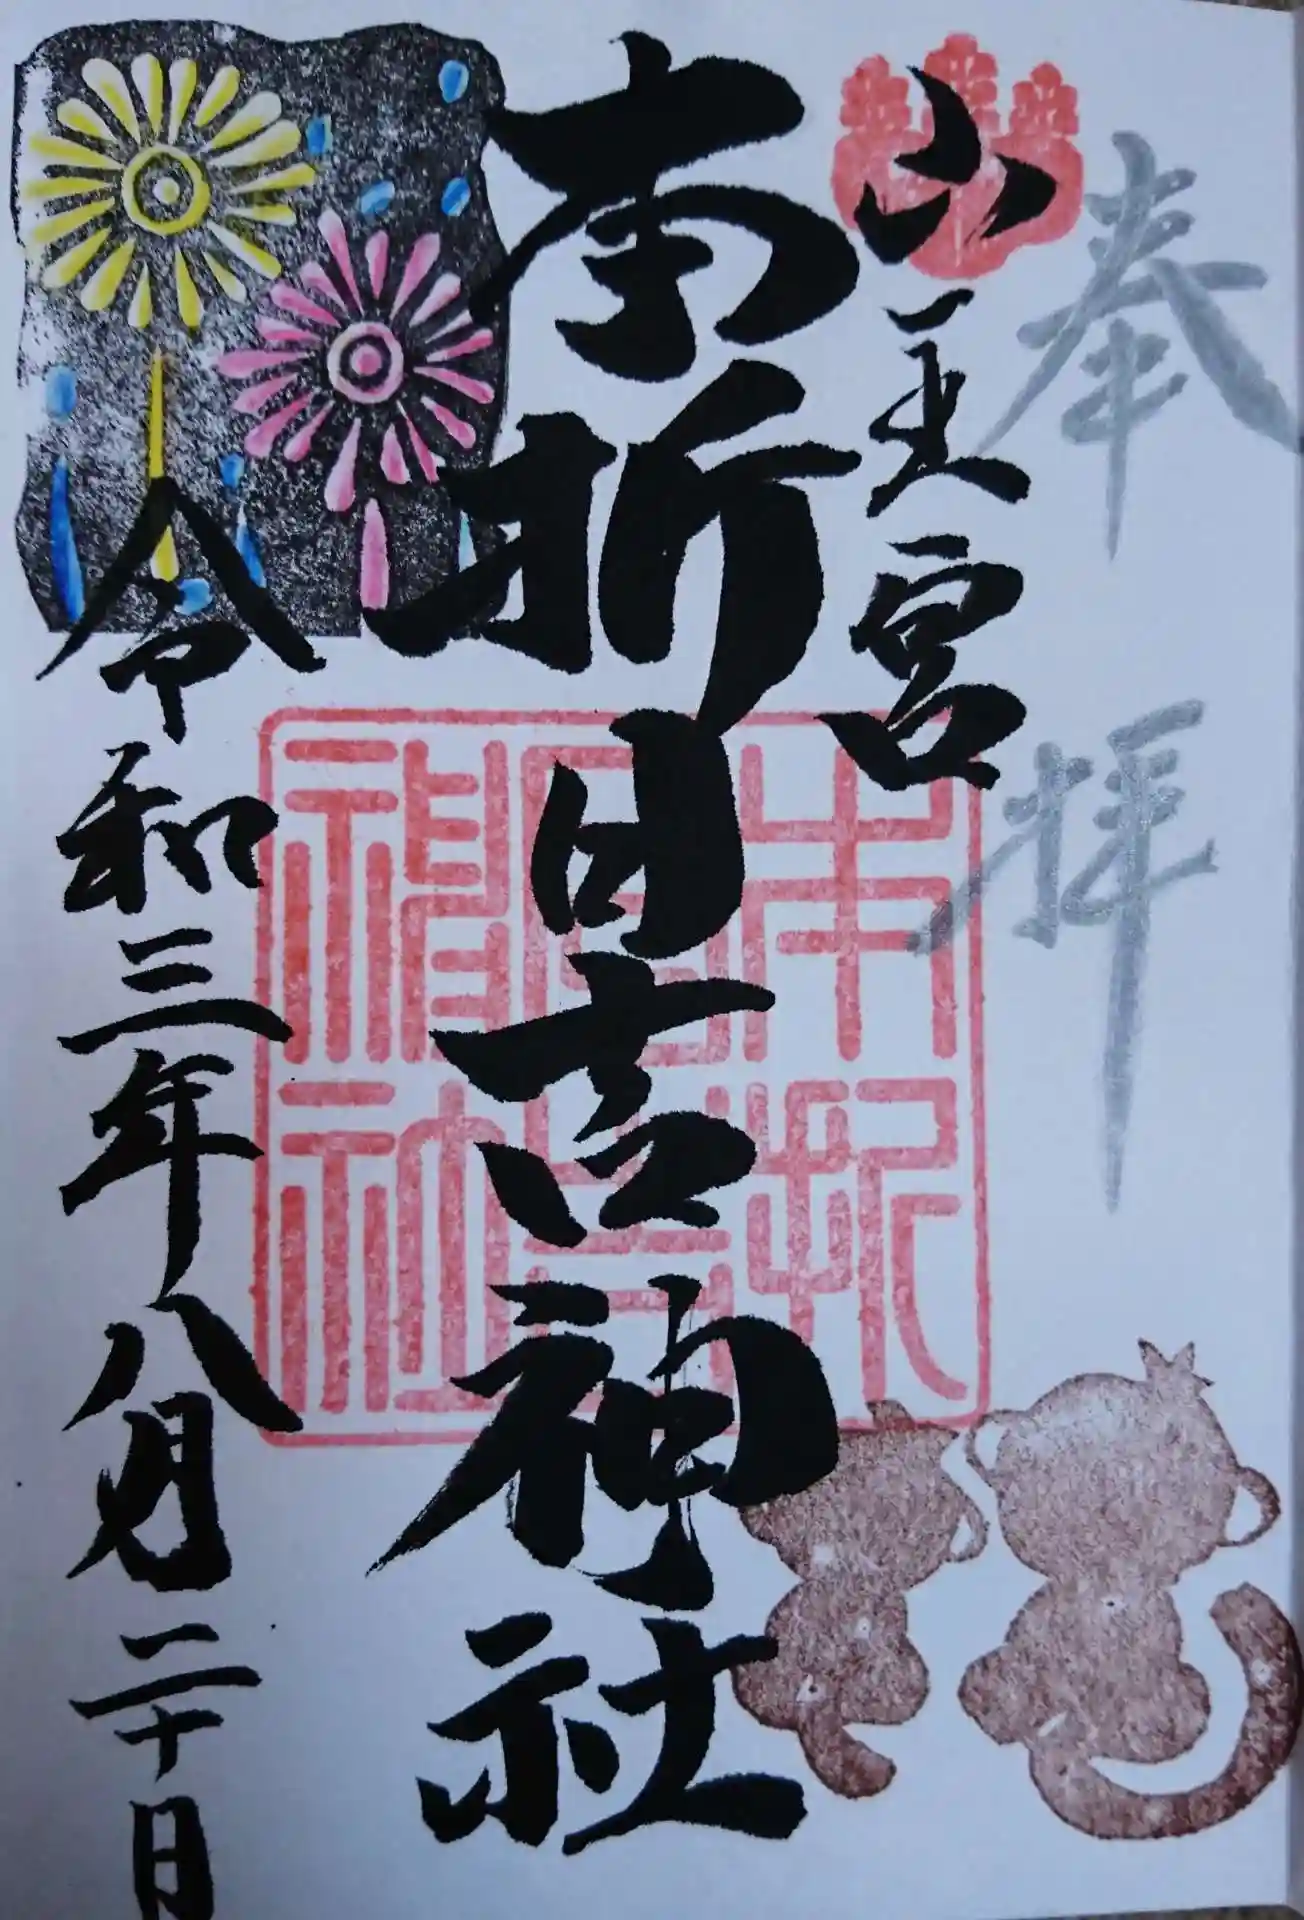 奉拝
山王宮
本折日吉神社
令和三年八月二十日
本折
日吉
神社